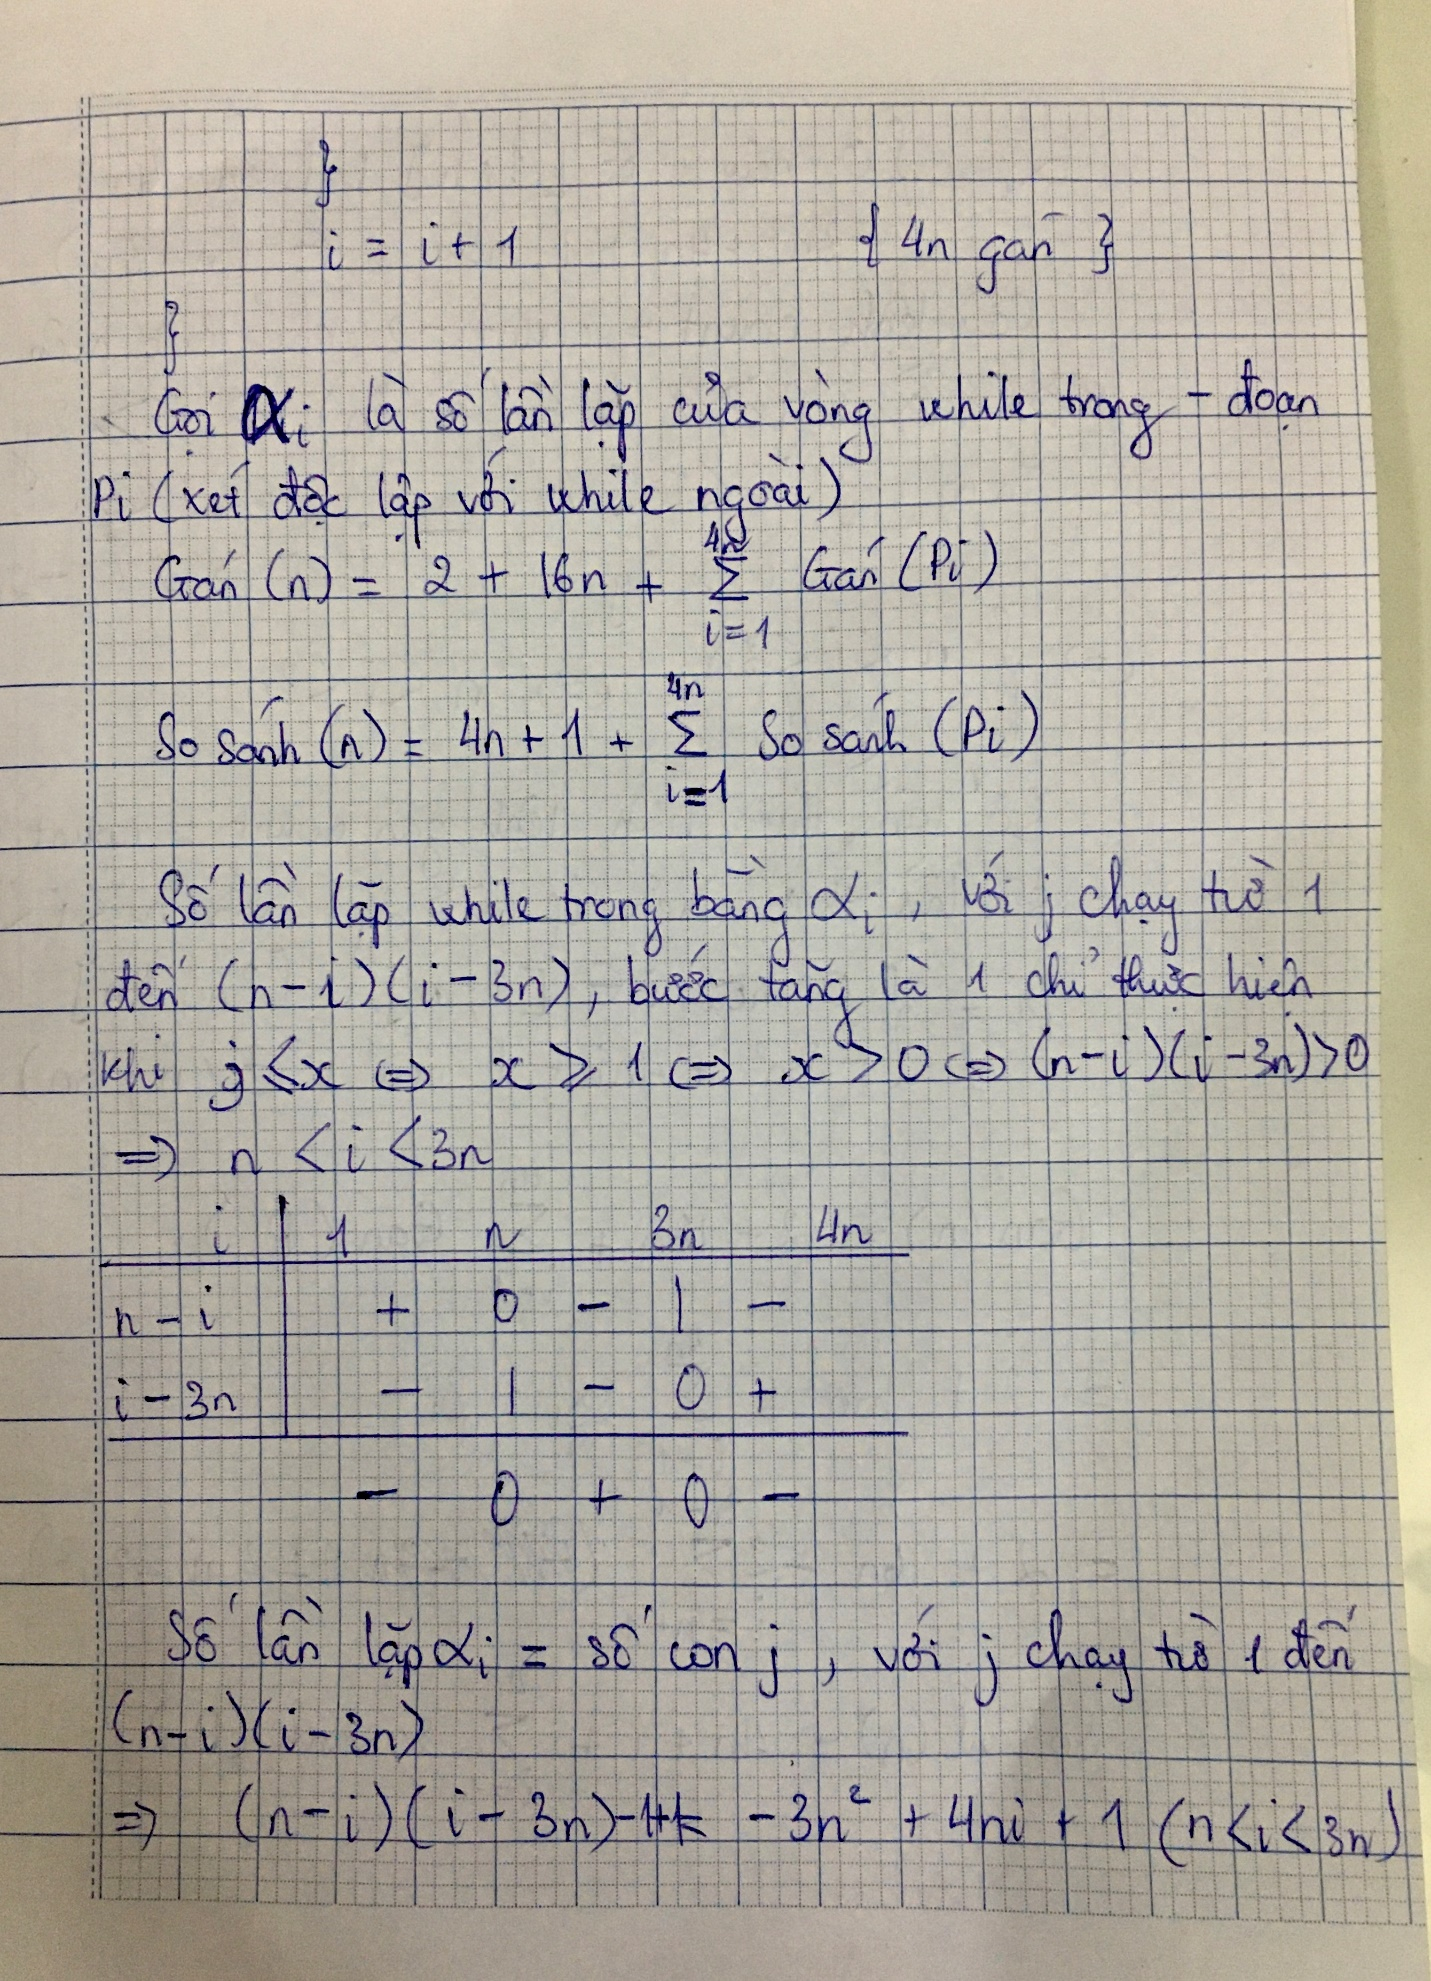 }
i = i + 1 { 4n gán }
}
Gọi αi là số lần lặp của vòng while trong - đoạn
Pi (xét độc lập với while ngoài)
Gán (n) = 2 + 16n + 4n Σ i=1 Gán (Pi)
So sánh (n) = 4n + 1 + 4n Σ i=1 So sánh (Pi)
Số lần lặp while trong bằng αi, với j chạy từ 1
đến (n-i)(i-3n), bước tăng là 1 chỉ thực hiện
khi j ≤ x ⇔ x ≥ 1 ⇔ x > 0 ⇔ (n-i)(i-3n)>0
⇒ n < i < 3n
i | 1 n 3n 4n
n - i | + 0 - | -
i - 3n | - | - 0 +
- 0 + 0 -
Số lần lặp αi = số con j, với j chạy từ 1 đến
(n-i)(i-3n)
⇒ (n-i)(i-3n)-1+1= -3n² + 4ni + 1 (n<i<3n)